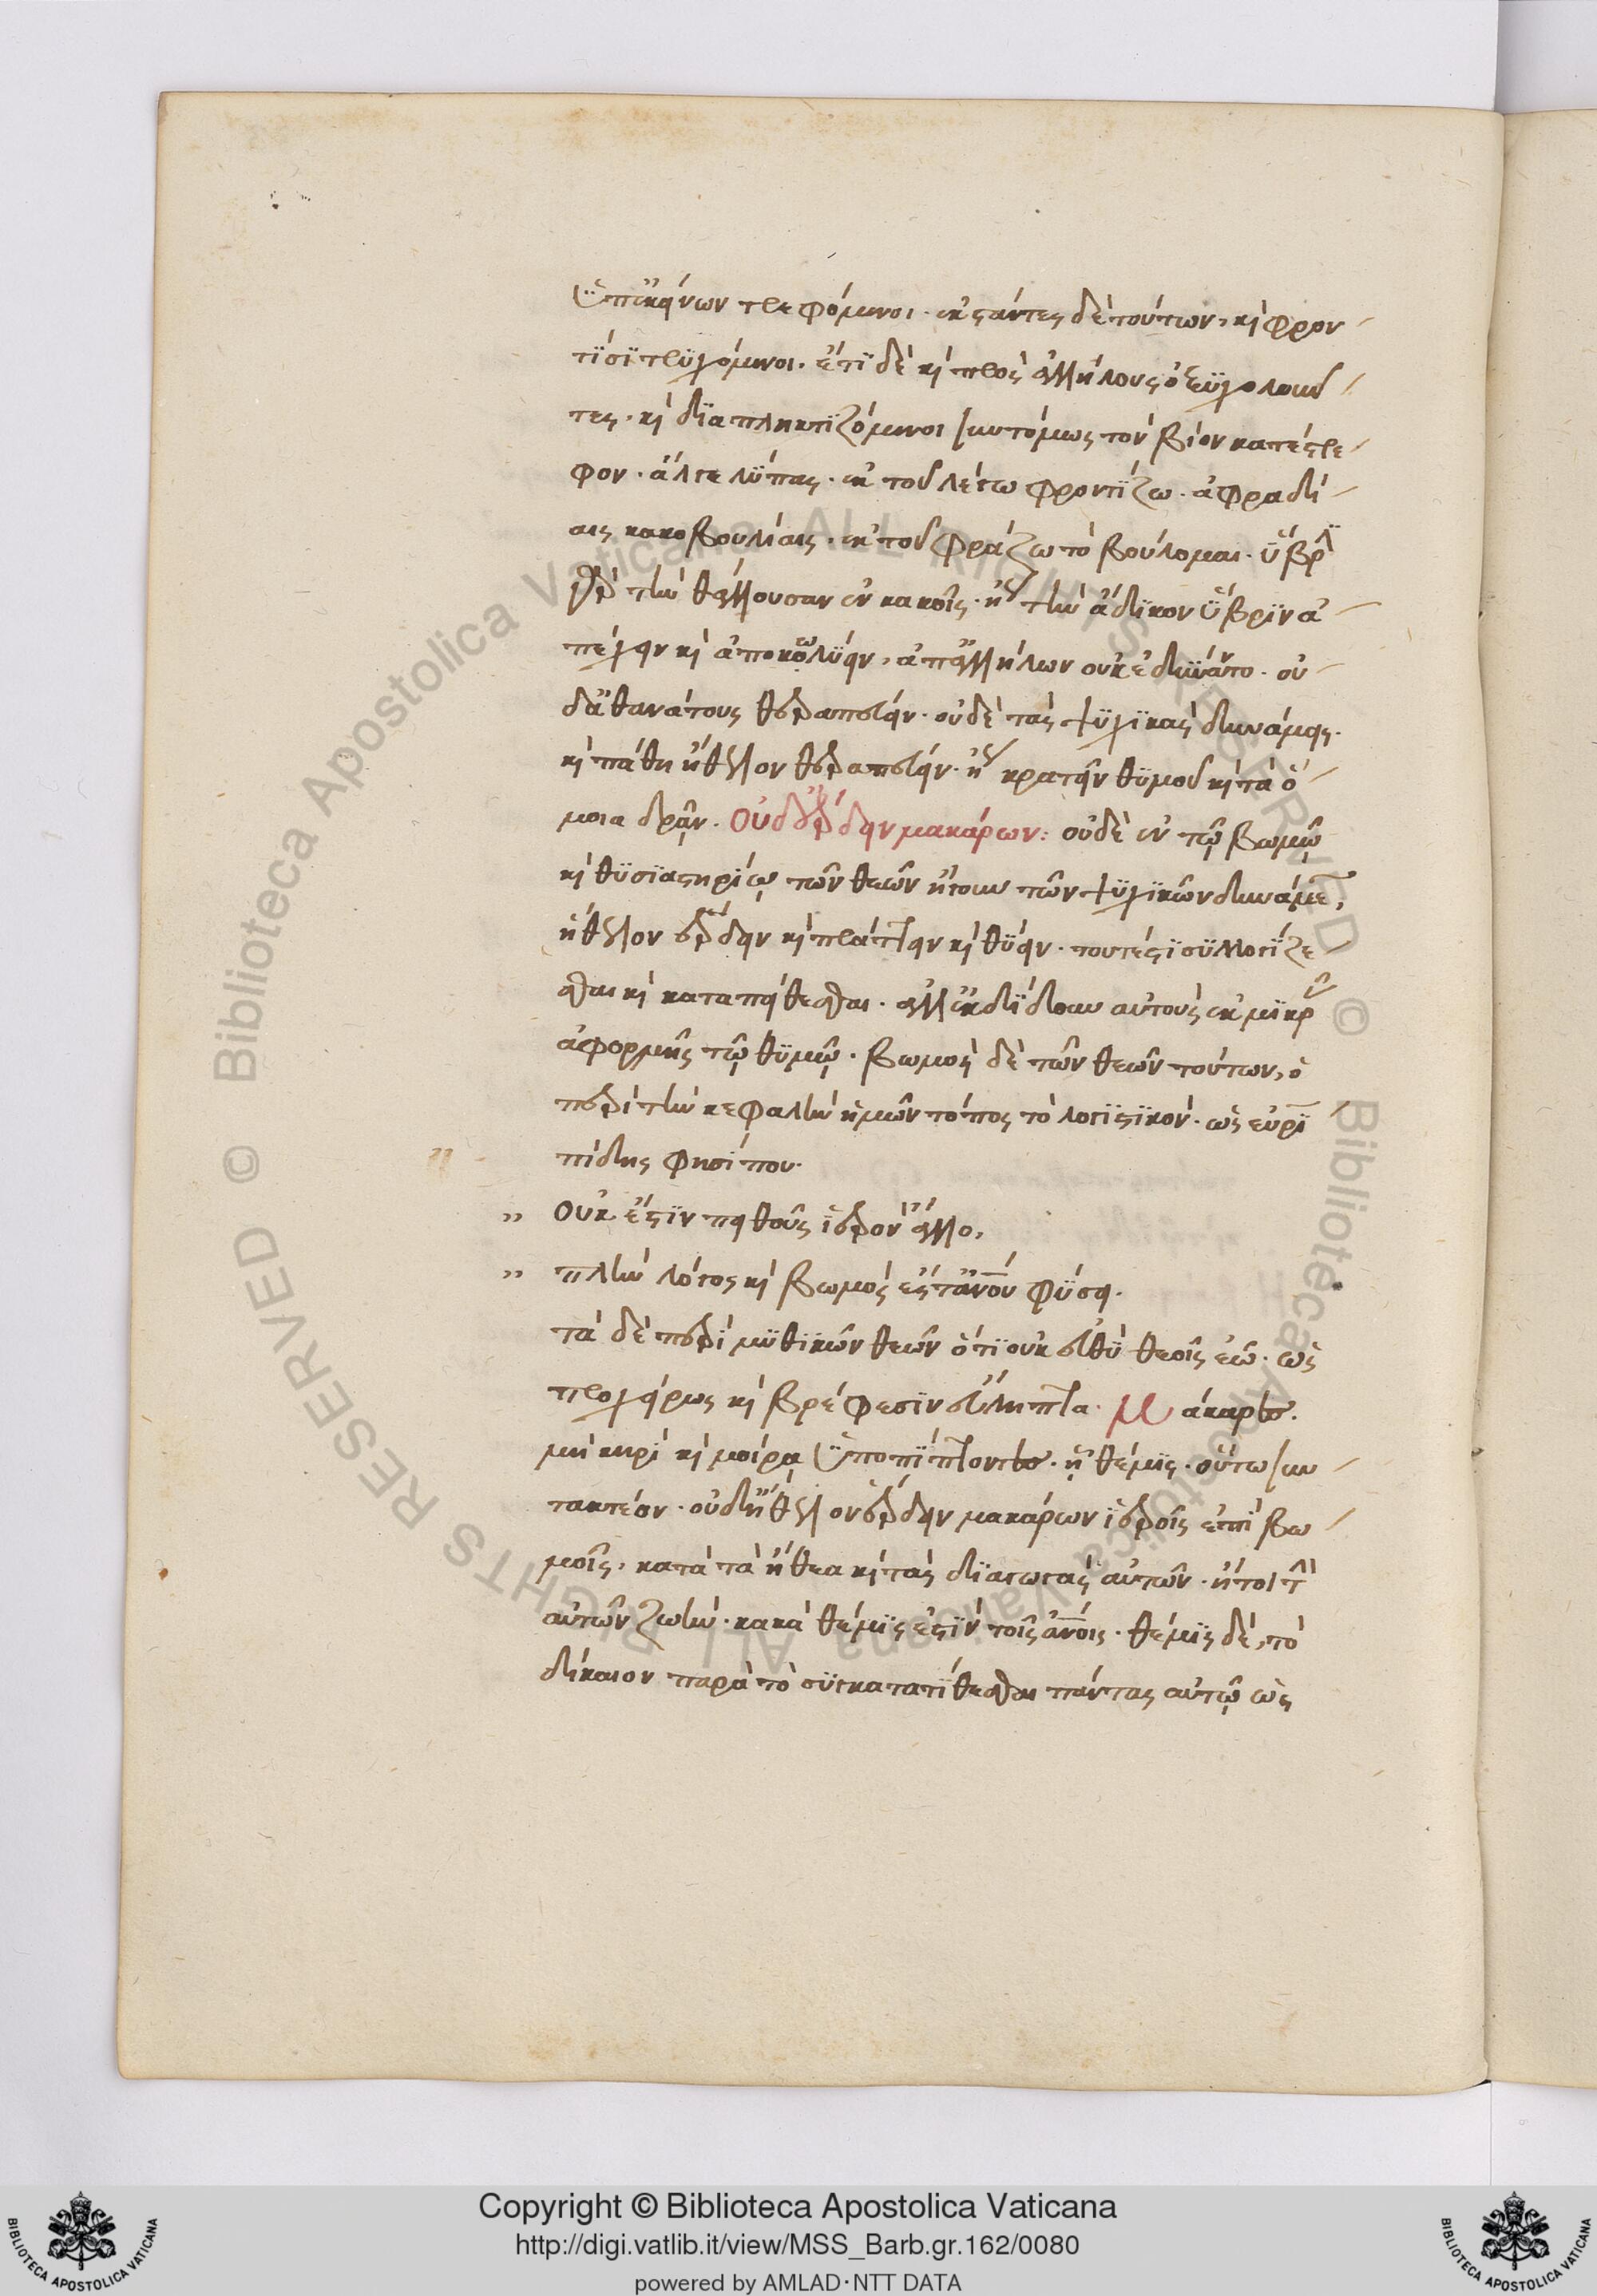 ὑπ' ἐκείνων τρεφόμενοι. ἐκστάντες δὲ τούτων, καὶ φρον
τίσι τρυχόμενοι. ἔτι δὲ καὶ πρὸς ἀλλήλους ὀξυχολοῦν
τες. καὶ διαπληκτιζόμενοι συντόμως τὸν βίον κατέστρε
φον. ἄλγε λύπας. ἐκ τοῦ λέγω φροντίζω. ἀφραδί
αις κακοβουλίαις. ἐκ τοῦ φράζω τὸ βούλομαι. ὕβριν
γὰρ τὴν θάλλουσαν ἐν κακοῖς. ἢ τὴν ἄδικον ὕβριν ἀ
πέχειν καὶ ἀποκωλύειν, ἀπ' ἀλλήλων οὐκ ἐδύναντο. οὐ
δ' ἀθανάτους θεραπεύειν. οὐδὲ τὰς ψυχικὰς δυνάμεις.
καὶ πάθη ἤθελον θεραπεύειν. ἢ κρατεῖν θυμοῦ καὶ τὰ ὅ
μοια δρᾶν. Οὐδ' ἔρδειν μακάρων: οὐδὲ ἐν τῷ βωμῷ
καὶ θυσιαστηρίῳ τῶν θεῶν ἤγουν τῶν ψυχικῶν δυνάμεων,
ἤθελον ἔρδειν καὶ πράττειν καὶ θύειν. τουτέστι συλλογίζε
σθαι καὶ καταπείθεσθαι. ἀλλ' ἐξεδίδοσαν αὐτοὺς ἐκ μικρᾶς
ἀφορμῆς τῷ θυμῷ. βωμοὶ δὲ τῶν θεῶν τούτων, ὁ
περὶ τὴν κεφαλὴν ἡμῶν τόπος τὸ λογιστικόν. ὡς εὐρι
πίδης φησί που.
οὐκ ἔστιν πειθοῦς ἱερὸν ἄλλο,
πλὴν λόγος καὶ βωμὸς ἔστ' ἀνου φύσει.
τὰ δὲ περὶ μυθικῶν θεῶν ὅτι οὐκ ἔθυον θεοῖς ἐῶ. ὡς
προχείρως καὶ βρέφεσιν εὔληπτα. Μάκαρες.
μὴ κηρὶ καὶ μοίρᾳ ὑποπίπτοντες. ᾗ θέμις. οὕτω συν
τακτέον. οὐδ' ἤθελον ἔρδειν μακάρων ἱεροῖς ἐπὶ βω
μοῖς, κατὰ τὰ ἤθεα καὶ τὰς διαγωγὰς αὐτῶν. ἤτοι τὴν
αὐτῶν ζωήν. κακὰ θέμις ἐστὶν τοῖς ἀνοις. θέμις δὲ, τὸ
δίκαιον παρὰ τὸ συγκατατίθεσθαι πάντας αὐτῷ ὡς
Biblioteca Apostolica Vaticana ALL RIGHTS RESERVED ©
Copyright © Biblioteca Apostolica Vaticana
http://digi.vatlib.it/view/MSS_Barb.gr.162/0080
powered by AMLAD·NTT DATA
BIBLIOTECA APOSTOLICA VATICANA
BIBLIOTECA APOSTOLICA VATICANA